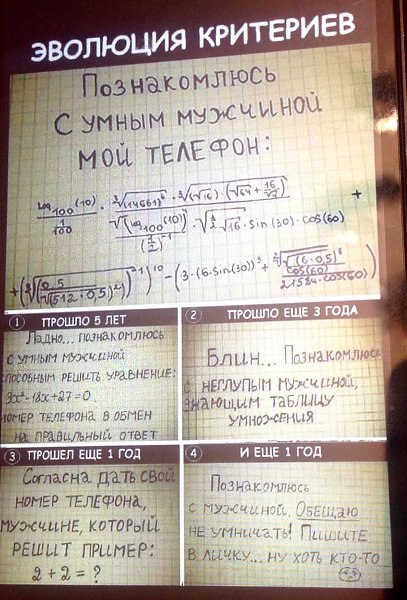 ЭВОЛЮЦИЯ КРИТЕРИЕВ
Познакомлюсь
С умным мужчиной
МОЙ ТЕЛЕФОН:
1 ПРОШЛО 5 ЛЕТ
Ладно... познакомлюсь
с умным мужчиной
способным решить уравнение:
3x²-18x+27=0
номер телефона в обмен
на правильный ответ
2 ПРОШЛО ЕЩЕ 3 ГОДА
Блин... Познакомлюсь
с неглупым мужчиной,
знающим таблицу
умножения
3 ПРОШЕЛ ЕЩЕ 1 ГОД
Согласна дать свой
номер телефона,
мужчине, который
решит пример:
2+2=?
4 И ЕЩЕ 1 ГОД
Познакомлюсь
с мужчиной. Обещаю
не умничать! Пишите
в личку... ну хоть кто-то